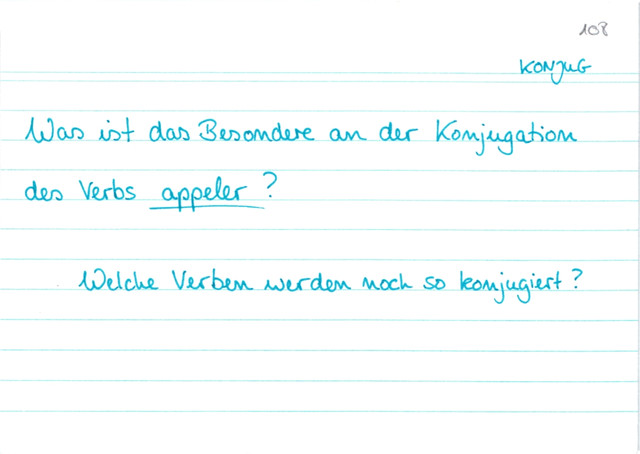 108
KONJUG
Was ist das Besondere an der Konjugation
des Verbs appeler?
Welche Verben werden noch so konjugiert?